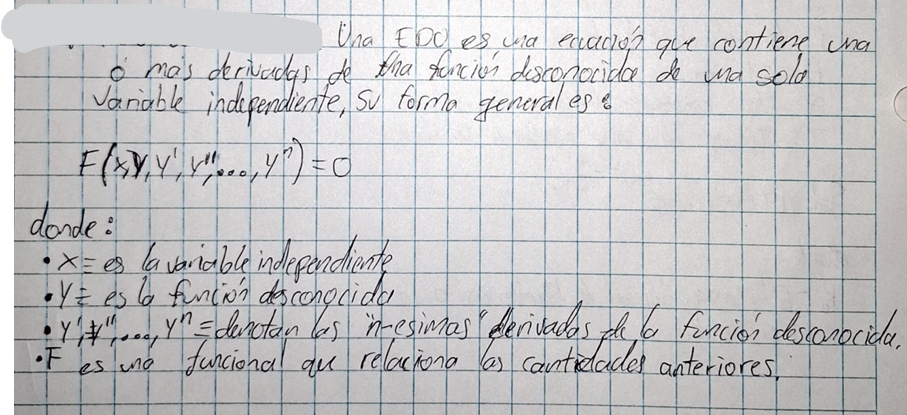 Una EDO es una ecuación que contiene una
ó más derivadas de una función desconocida de una sola
variable independiente, su forma general es:
F(x,y,y',y'',...,yⁿ)=0
donde:
• x = es la variable independiente
• y = es la función desconocida
• y',y'',...,yⁿ = denotan las "n-esimas" derivadas de la función desconocida.
• F es una funcional que relaciona las cantidades anteriores.